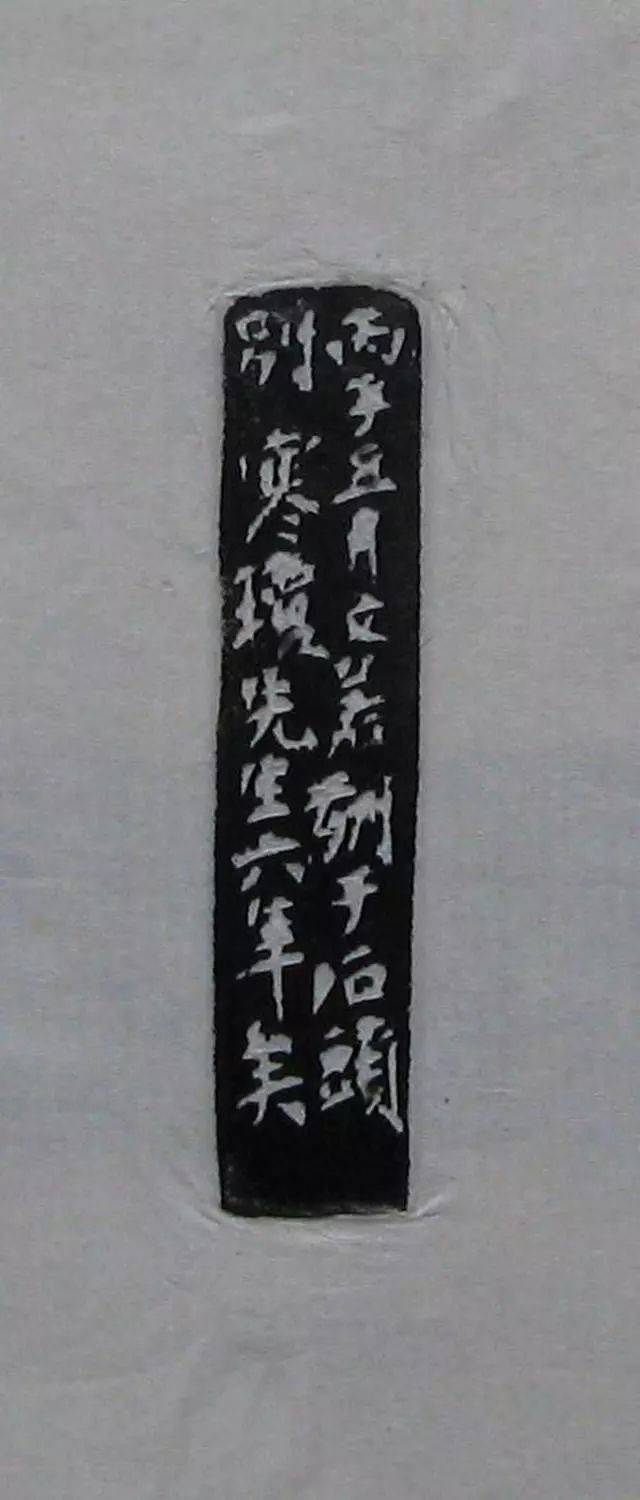 丙子五月文于石頭
別寒瓊先生六年矣